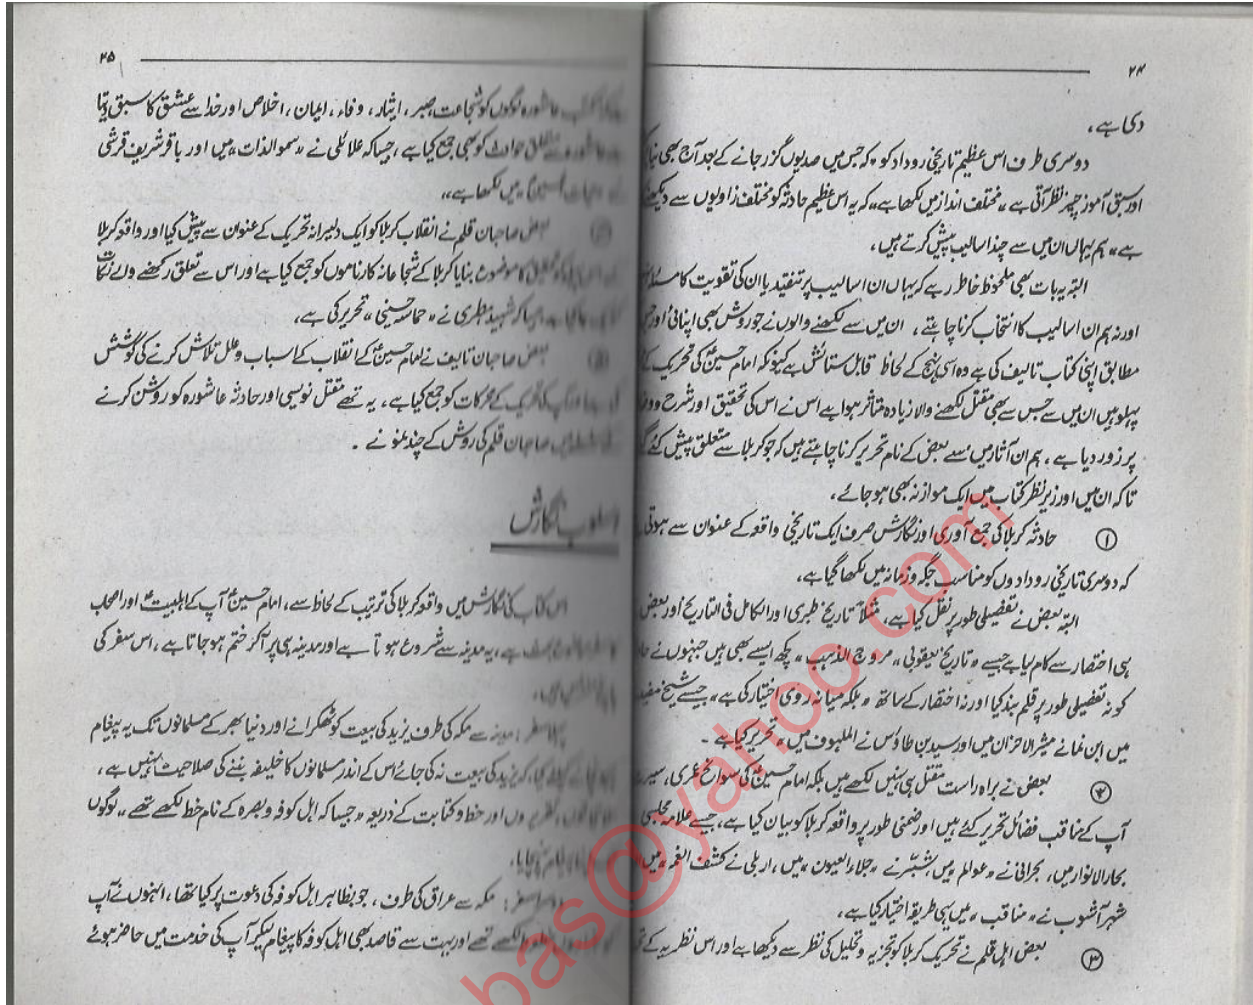 ۲۴
دی ہے،
دوسری طرف اس عظیم تاریخی روداد کو، کہ جس میں صدیوں گزر جانے کے بعد آج بھی
اور سبق آموز چیز نظر آتی ہے، مختلف انداز میں لکھا ہے، کہ یہ اس عظیم حادثہ کو مختلف زاویوں سے
ہے، ہم یہاں ان میں سے چند اسالیب پیش کرتے ہیں،
البتہ یہ بات بھی ملحوظ خاطر رہے کہ یہاں ان اسالیب پر تنقید یا ان کی تقویت کا
اور نہ ہم ان اسالیب کا انتخاب کرنا چاہتے، ان میں سے لکھنے والوں نے جو روش بھی اپنائی اور
مطابق اپنی کتاب تالیف کی ہے وہ اسی نہج کے لحاظ قابل ستائش ہے کیونکہ امام حسینؑ کی تحریک کے
پہلو ہیں ان میں سے جس سے بھی مقتل لکھنے والا زیادہ متاثر ہوا ہے اس نے اس کی تحقیق اور شرح و
پر زور دیا ہے، ہم ان آثار میں سے بعض کے نام تحریر کرنا چاہتے ہیں کہ جو کربلا سے متعلق پیش کئے
تاکہ ان میں اور زیر نظر کتاب میں ایک موازنہ بھی ہو جائے،
① حادثہ کربلا کی جمع آوری اور نگارش صرف ایک تاریخی واقعہ کے عنوان سے ہوتی
کہ دوسری تاریخی رودادوں کو مناسب جگہ و زمانہ میں لکھا گیا ہے،
البتہ بعض نے تفصیلی طور پر نقل کیا ہے، مثلاً تاریخ طبری اور الکامل فی التاریخ اور بعض
ہی اختصار سے کام لیا ہے جیسے "تاریخ یعقوبی" مروج الذہب" کچھ ایسے بھی ہیں جنہوں نے
کو نہ تفصیلی طور پر قلم بند کیا اور نہ اختصار کے ساتھ، بلکہ میانہ روی اختیار کی ہے، جیسے شیخ مفید
میں ابن نمانے مثیر الاحزان میں اور سید بن طاؤس نے الملہوف میں، تحریر کیا ہے۔
② بعض نے براہ راست مقتل ہی نہیں لکھے ہیں بلکہ امام حسینؑ کی سوانح عمری،
آپ کے مناقب فضائل تحریر کئے ہیں اور ضمنی طور پر واقعہ کربلا کو بیان کیا ہے، جیسے علامہ مجلسی
بحار الانوار میں، بحرانی نے "عوالم" میں شبّر نے "جلاء العیون" میں، اربلی نے کشف الغمہ" میں
شہر آشوب نے "مناقب" میں یہی طریقہ اختیار کیا ہے،
③ بعض اہل قلم نے تحریک کربلا کو تجزیہ و تحلیل کی نظر سے دیکھا ہے اور اس نظریہ کے
۲۵
عاشورہ لوگوں کو شجاعت، صبر، ایثار، وفاء، ایمان، اخلاص اور خدا سے عشق کا سبق دیتا
حوادث کو بھی جمع کیا ہے، جیسا کہ علائلی نے "سمو الذات" میں اور باقر شریف قرشی
میں لکھا ہے،
بعض صاحبان قلم نے انقلاب کربلا کو ایک دلیرانہ تحریک کے عنوان سے پیش کیا اور واقعہ کربلا
کا موضوع بنایا کربلا کے شجاعانہ کارناموں کو جمع کیا ہے اور اس سے تعلق رکھنے والے نکات
جیسا کہ شہید مطہری نے "حماسہ حسینی" تحریر کی ہے،
بعض صاحبان تالیف نے امام حسینؑ کے انقلاب کے اسباب و علل تلاش کرنے کی کوشش
کے محرکات کو جمع کیا ہے، یہ تھے مقتل نویسی اور حادثہ عاشورہ کو روشن کرنے
میں صاحبان قلم کی روش کے چند نمونے۔
اسلوب نگارش
اس کتاب کی نگارش میں واقعہ کربلا کی ترتیب کے لحاظ سے، امام حسینؑ آپ کے اہلبیتؑ اور اصحاب
ہے، یہ مدینہ سے شروع ہوتا ہے اور مدینہ ہی پر آکر ختم ہو جاتا ہے، اس سفر کی
ہیں،
پہلا سفر: مدینہ سے مکہ کی طرف یزید کی بیعت کو ٹھکرانے اور دنیا بھر کے مسلمانوں تک یہ پیغام
کہ یزید کی بیعت نہ کی جائے اس کے اندر مسلمانوں کا خلیفہ بننے کی صلاحیت نہیں ہے،
اور خط و کتابت کے ذریعہ، جیسا کہ اہل کوفہ و بصرہ کے نام خط لکھے تھے، لوگوں
دوسرا سفر: مکہ سے عراق کی طرف، جو بظاہر اہل کوفہ کی دعوت پر کیا تھا، انہوں نے آپ
لکھے تھے اور بہت سے قاصد بھی اہل کوفہ کا پیغام لیکر آپ کی خدمت میں حاضر ہوئے
bas@yahoo.com